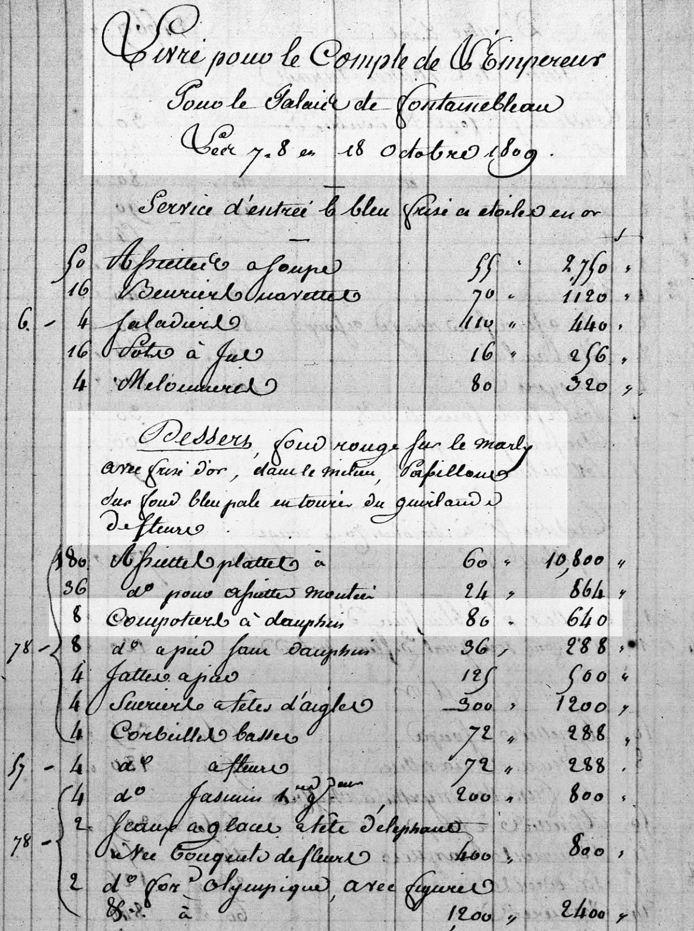 Livré pour le Compte de L'Empereur
Pour le Palais de fontainebleau
Les 7. 8 et 18 Octobre 1809.
Service d'entrée b bleu frise et etoiles en or
50 Assiettes a soupe 55 " 2,750 "
16 Beuriers navettes 70 " 1120 "
6. - 4 saladiers 110 " 440 "
16 Pots à Jus 16 " 256 "
4 Melonnieres 80 " 320 "
Dessert, fond rouge sur le marly
avec frise d'or, dans le milieu, Papillons
sur fond bleu pale entourés du guirlande
de fleurs.
180 Assiettes plattes à 60 " 10,800 "
36 do pour assiettes montées 24 " 864 "
8 Compotiers à dauphins 80 " 640
78 - 8 do a pied sans dauphins 36 " 288 "
4 Jattes a pied 125 500 "
4 Sucriers a tetes d'aigles 300 " 1200 "
4 Corbeilles basses 72 " 288 "
57 - 4 do a fleurs 72 " 288 .
4 do Jasmin 200 " 800 "
2 seaux a glace a tete d'elephant
78 - avec bouquets de fleurs 400 " 800 "
2 do forе olympique, avec figures
&. à 1200 " 2400 "